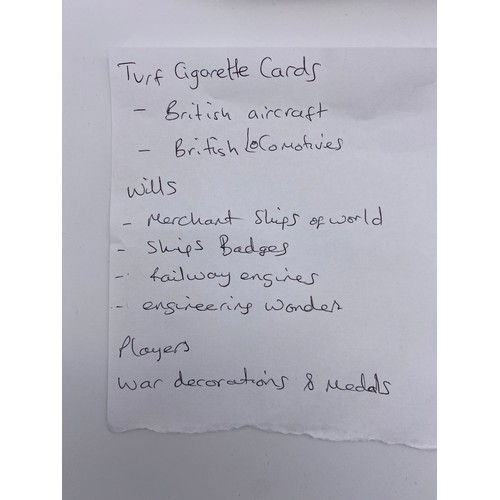 Turf Cigarette Cards
- British aircraft
- British Locomotives
Wills
- Merchant Ships of world
- Ships Badges
- Railway engines
- engineering wonder
Players
War decorations & Medals